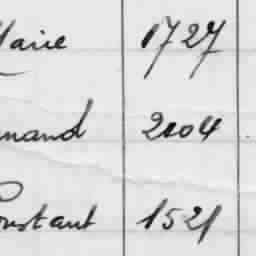 Marie 1727
nand 2104
Constant 1521